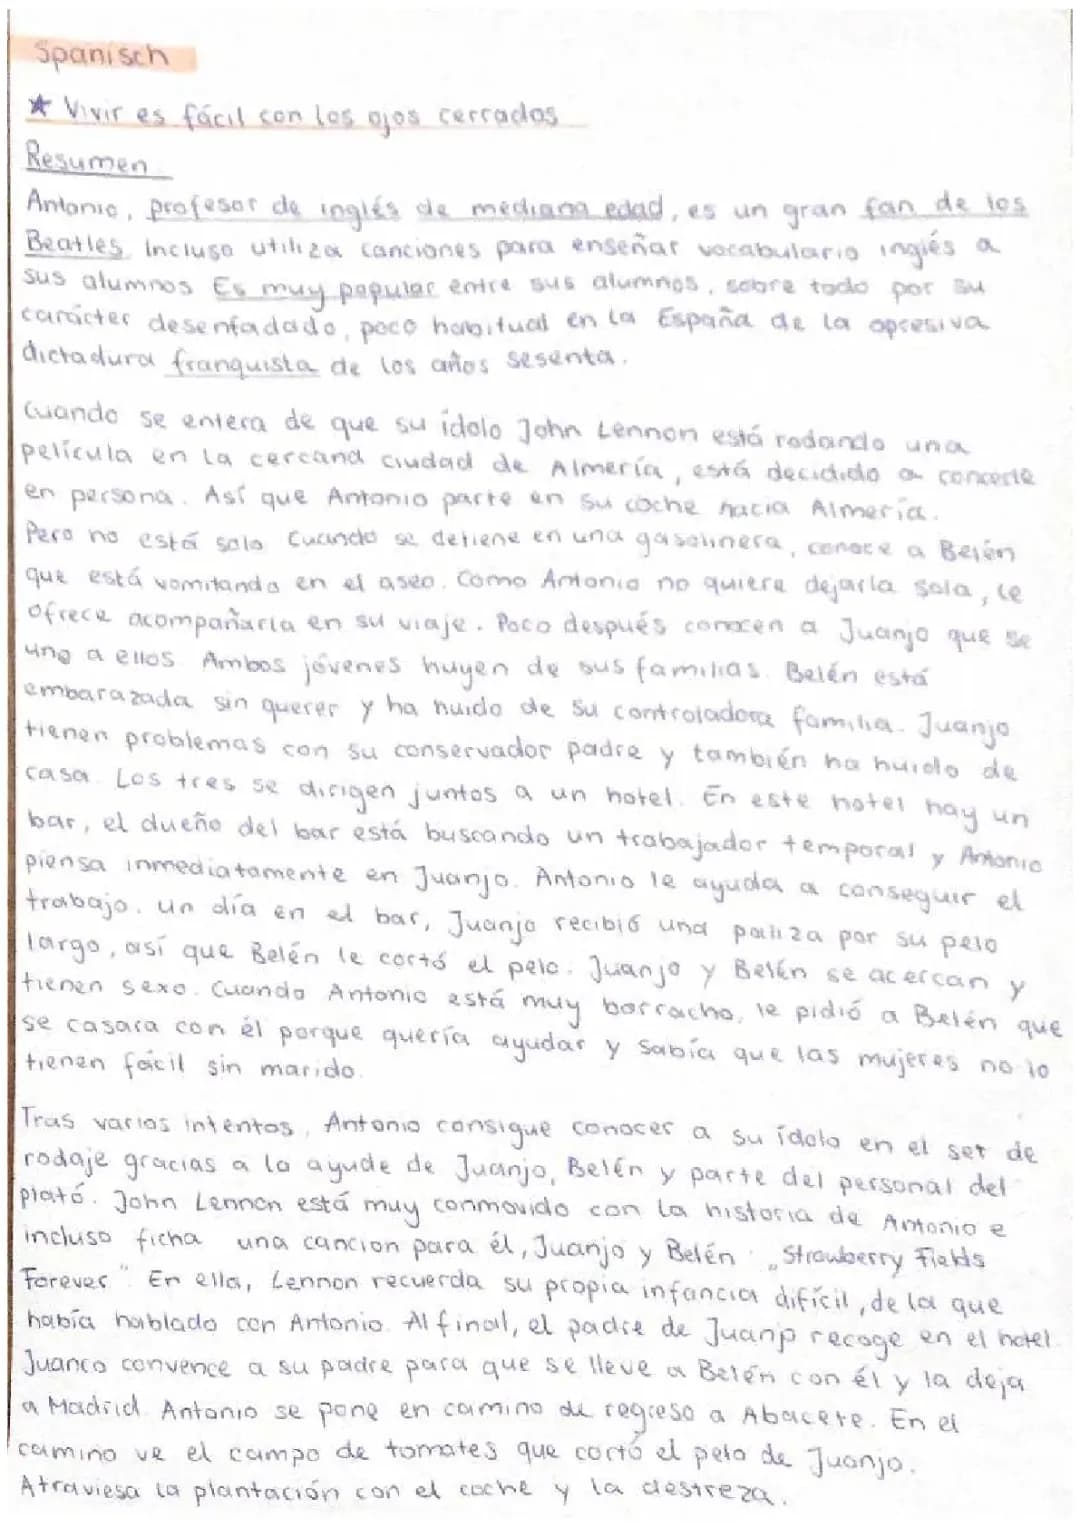 Spanisch
* Vivir es fácil con los ojos cerrados
Resumen
Antonio, profesor de inglés de mediana edad, es un gran fan de los
Beatles. Incluso utiliza canciones para enseñar vocabulario inglés a
sus alumnos Es muy popular entre sus alumnos, sobre todo por su
carácter desenfadado, poco habitual en la España de la opresiva
dictadura franquista de los años sesenta.
Cuando se entera de que su ídolo John Lennon está rodando una
película en la cercana ciudad de Almería, está decidido a
en persona. Así que Antonio parte en su coche hacia Almería.
Pero no está solo Cuando se detiene en una gasolinera, conoce a Belén
que está vomitando en el aseo. Como Antonio no quiere dejarla sola, le
ofrece acompañarla en su viaje. Poco después conocen a Juanjo que se
une a ellos Ambos jóvenes huyen de sus familias. Belén está
embarazada sin querer y ha huido de su controladora familia. Juanjo
tienen problemas con su conservador padre y también ha huido de
casa. Los tres se dirigen juntos a un hotel. En este hotel hay un
bar, el dueño del bar está buscando un trabajador temporal y Antonio
piensa inmediatamente en Juanjo. Antonio le ayuda a conseguir el
trabajo. un día en el bar, Juanjo recibió una paliza por su pelo
largo, así que Belén le cortó el pelo. Juanjo y Belén se acercan y
tienen sexo. Cuando Antonio está muy borracho, le pidió a Belén que
se casara con él porque quería ayudar y sabía que las mujeres no lo
tienen fácil sin marido.
Tras varios intentos, Antonio consigue conocer a su ídolo en el set de
rodaje gracias a la ayude de Juanjo, Belén y parte del personal del
plató. John Lennon está muy conmovido con la historia de Antonio e
incluso ficha una cancion para él, Juanjo y Belén: „Strawberry Fields
Forever“. En ella, Lennon recuerda su propia infancia difícil, de la que
había hablado con Antonio. Al final, el padre de Juanjo recoge en el hotel.
Juanco convence a su padre para que se lleve a Belén con él y la deja
a Madrid. Antonio se pone en camino de regreso a Abacete. En el
camino ve el campo de tomates que cortó el pelo de Juanjo.
Atraviesa la plantación con el coche y la destreza.